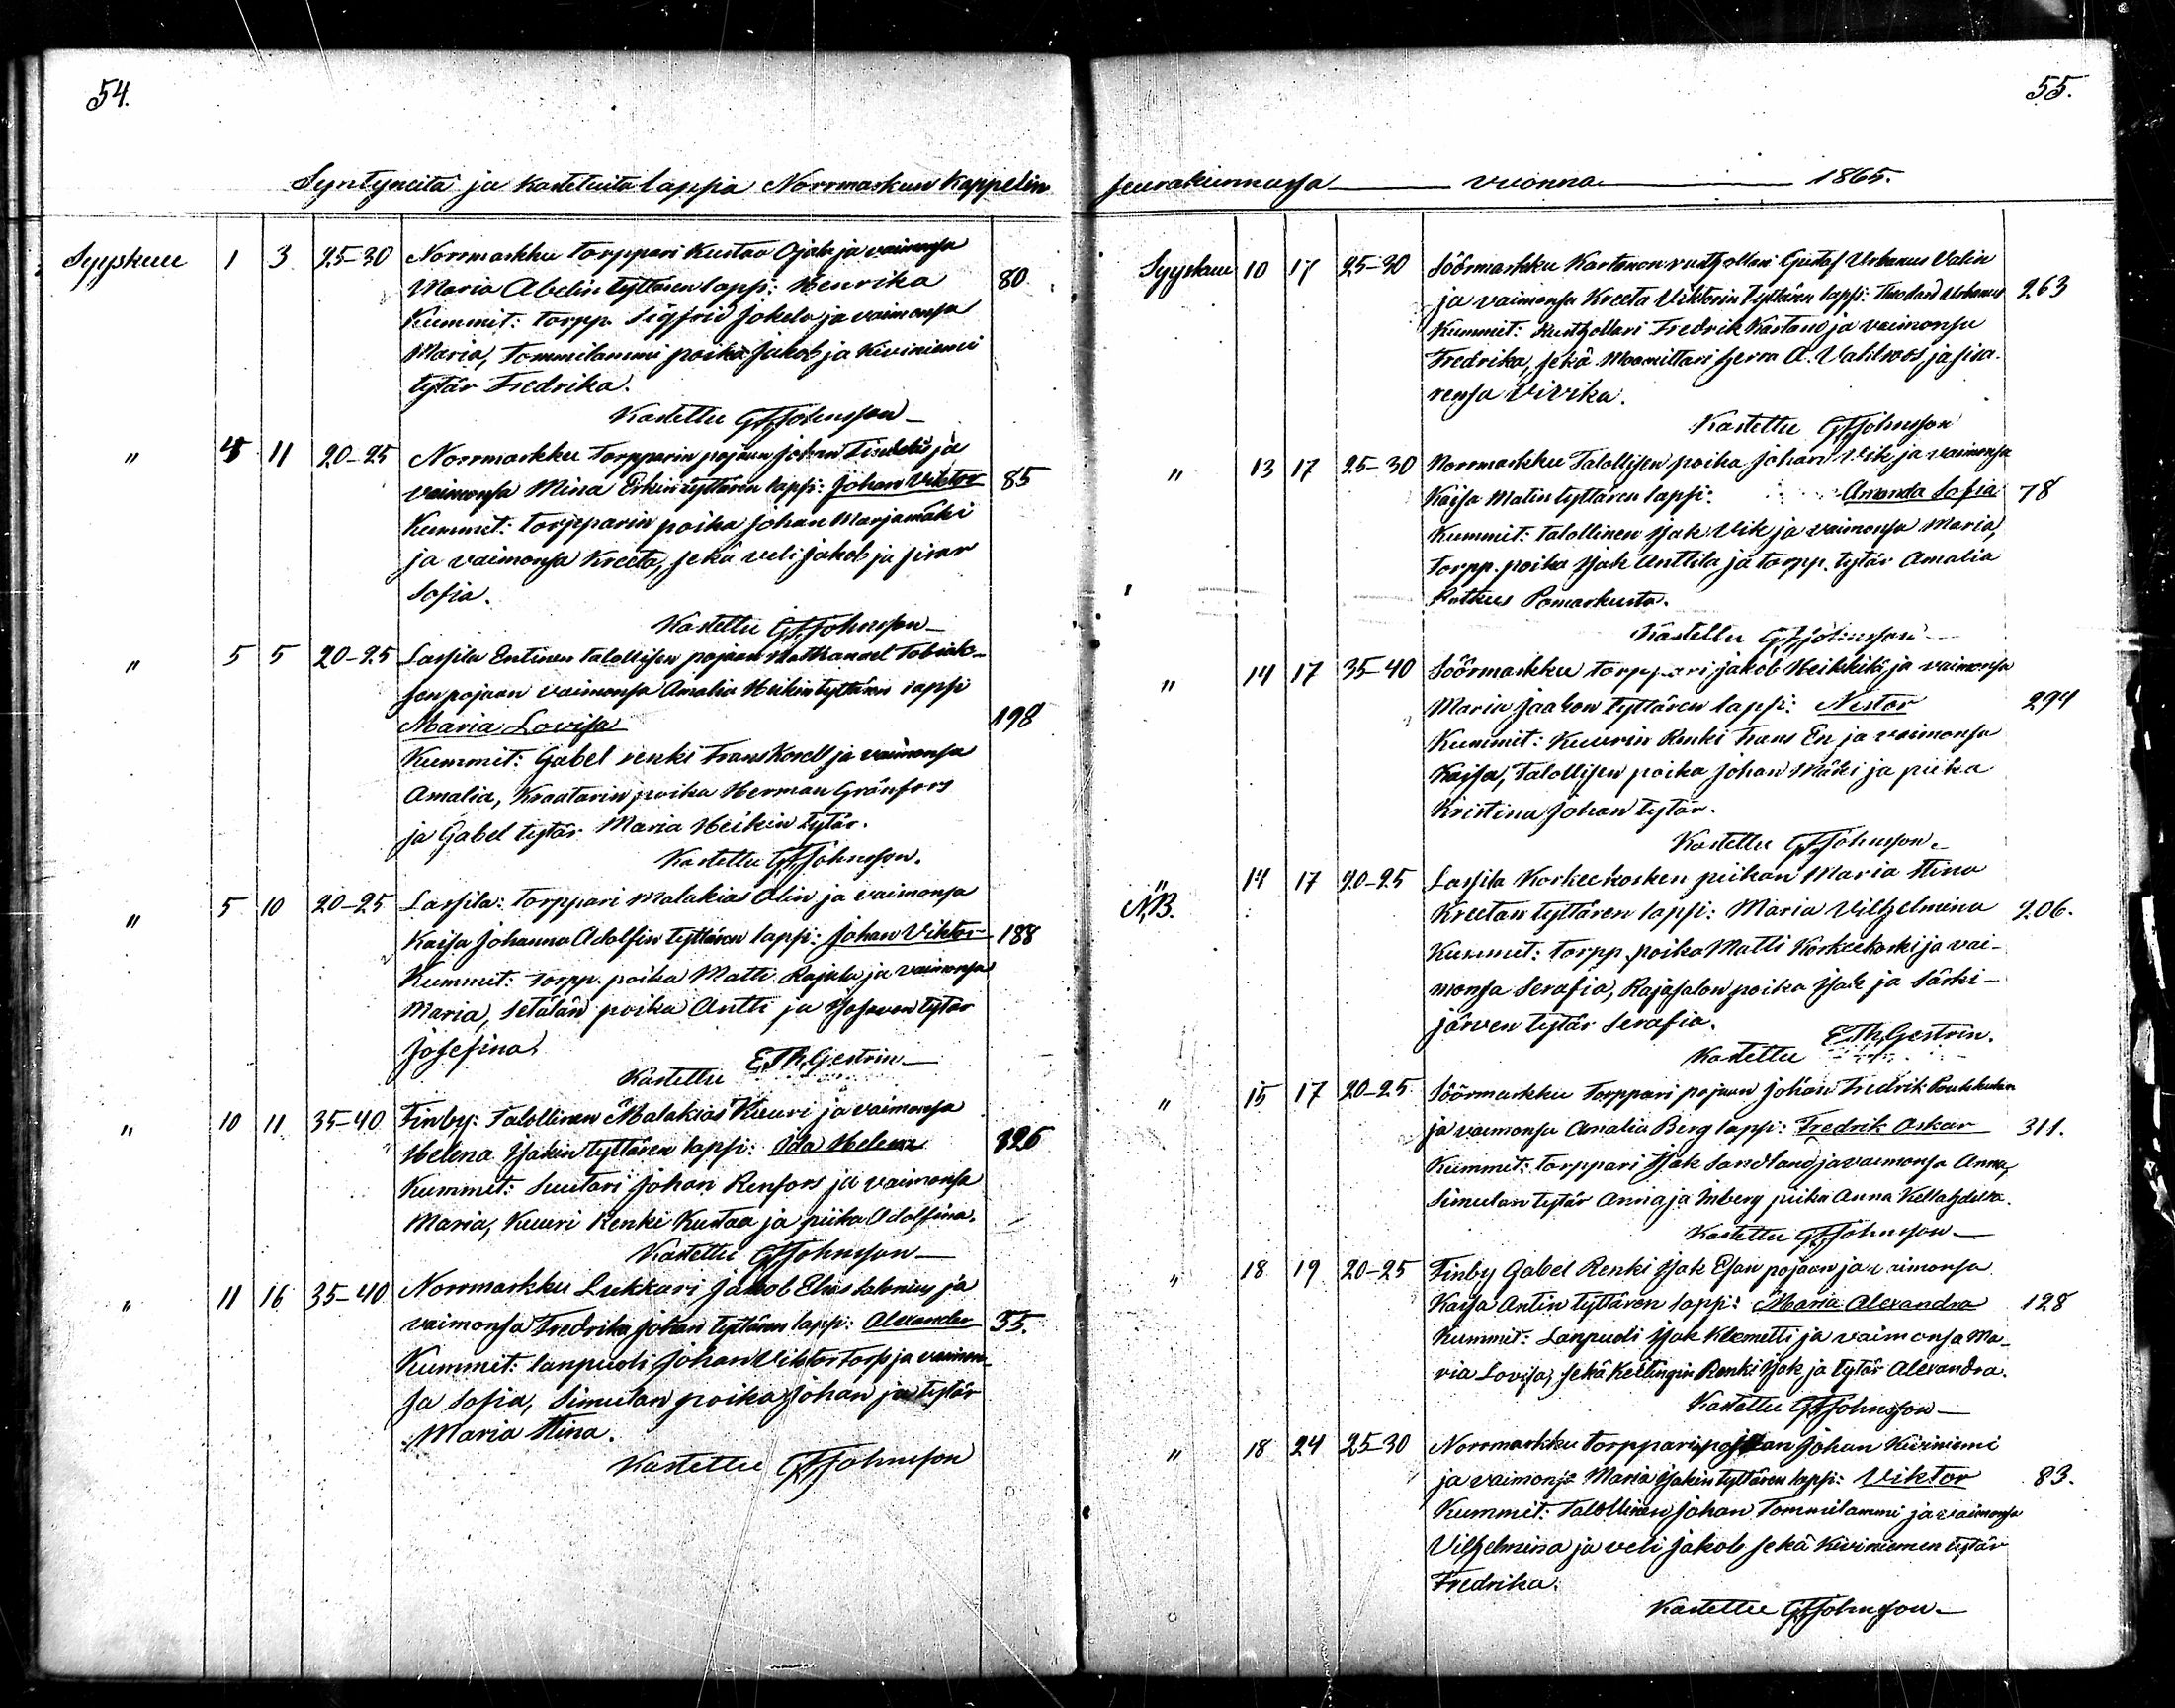 54.
Syntyneitä ja kastetuita lapsia Norrmarkun Kappelin
Syyskuu 1 3 25-30 Norrmarkku torppari Kustaa Ojala ja vaimonsa
Maria Abelin tyttären lapsi: Henrika 80.
Kummit: torpp. Sigfrid Jokela ja vaimonsa
Maria, Tommilammi poika Jakob ja Kiviniemi
tytär Fredrika.
Kastettu GFJohnsson
" 4 11 20-25 Norrmarkku Torpparin pojan Johan ja
vaimonsa Mina Erkin tyttären lapsi: Johan Viktor 85
Kummit: torpparin poika Johan Marjamäki
ja vaimonsa Kreeta, sekä veli Jakob ja sisar
Sofia.
Kastettu GFJohnsson
" 5 5 20-25 Lassila Entinen talollisen pojan Nathanael Tobiak-
sen pojaan vaimonsa Amalia Heikin tyttären lapsi
Maria Lovisa 198
Kummit: Gabel renki Frans Korell ja vaimonsa
Amalia, Kraatarin poika Herman Gränfors
ja Gabel tytär Maria Heikin tytär.
Kastettu GFJohnsson.
" 5 10 20-25 Lassila: torppari Malakias Olin ja vaimonsa
Kaisa Johanna Adolfin tyttären lapsi: Johan Viktor 188
Kummit: torpp. poika Matti Rajala ja vaimonsa
Maria, Setälän poika Antti ja tytär
Josefina.
Kastettu E.Th.Gestrin
" 10 11 35-40 Finby: Talollinen Malakias Kuuri ja vaimonsa
Helena Isakin tyttären lapsi: Ida Helena 126
Kummit: Suutari Johan Renfors ja vaimonsa
Maria, Kuuri Renki Kustaa ja piika Adolfina.
Kastettu GFJohnsson
" 11 16 35-40 Norrmarkku Lukkari Jakob Elias ja
vaimonsa Fredrika Johan tyttären lapsi: Alexander 35.
Kummit: lanpuoli Johan Viktor Torp ja vaimon-
sa Sofia, Simulan poika Johan ja tytär
Maria Stina.
Kastettu GFJohnsson
55.
seurakunnassa vuonna 1865.
Syyskuu 10 17 25-30 Söörmarkku Kartanon rusthollari Gustaf Urbanus Valin
ja vaimonsa Kreeta Viktorin tyttären lapsi: Theodard Urbanus 263
Kummit: Rusthollari Fredrik Kartano ja vaimonsa
Fredrika, sekä Maamittari herra A. Vahlroos ja sisa-
rensa Vivika.
Kastettu GFJohnsson
" 13 17 25-30 Norrmarkku Talollisen poika Johan Vik ja vaimonsa
Kaisa Matin tyttären lapsi: Amanda Sofia 78
Kummit: talollinen Isak Vik ja vaimonsa Maria,
torpp. poika Isak Anttila ja torpp. tytär Amalia
Pomarkusta.
Kastettu GFJohnsson
" 14 17 35-40 Söörmarkku torppari Jakob Heikkilä ja vaimonsa
Maria Jaakon tyttären lapsi: Nestor 294
Kummit: Kuurin Renki Frans En ja vaimonsa
Kaisa, Talollisen poika Johan Mäki ja piika
Kristina Johan tytär.
Kastettu GFJohnsson.
" 14 17 20-25 Lassila Korkeekosken piikan Maria Stina
N.B. Kreetan tyttären lapsi: Maria Vilhelmina 206.
Kummit: torpp. poika Matti Korkeekoski ja vai-
monsa Serafia, Rajasalon poika Isak ja Särki-
järven tytär Serafia.
Kastettu E.Th.Gestrin.
" 15 17 20-25 Söörmarkku Torppari pojaan Johan Fredrik
ja vaimonsa Amalia Berg lapsi: Fredrik Oskar 311.
Kummit: torppari Isak Sandlund ja vaimonsa Anna,
Simulan tytär Anna ja Inberg piika Anna
Kastettu GFJohnsson
" 18 19 20-25 Finby Gabel Renki Isak Esan pojaan ja vaimonsa
Kaisa Antin tyttären lapsi: Maria Alexandra 128
Kummit: Lanpuoli Isak Klemetti ja vaimonsa Ma-
ria Lovisa, sekä Kellingin Renki Isak ja tytär Alexandra.
Kastettu GFJohnsson
" 18 24 25-30 Norrmarkku torppari pojaan Johan Kiviniemi
ja vaimonsa Maria Isakin tyttären lapsi: Viktor 83.
Kummit: Talollinen Johan Tommilammi ja vaimonsa
Vilhelmina ja veli Jakob sekä Kiviniemen tytär
Fredrika.
Kastettu GFJohnsson